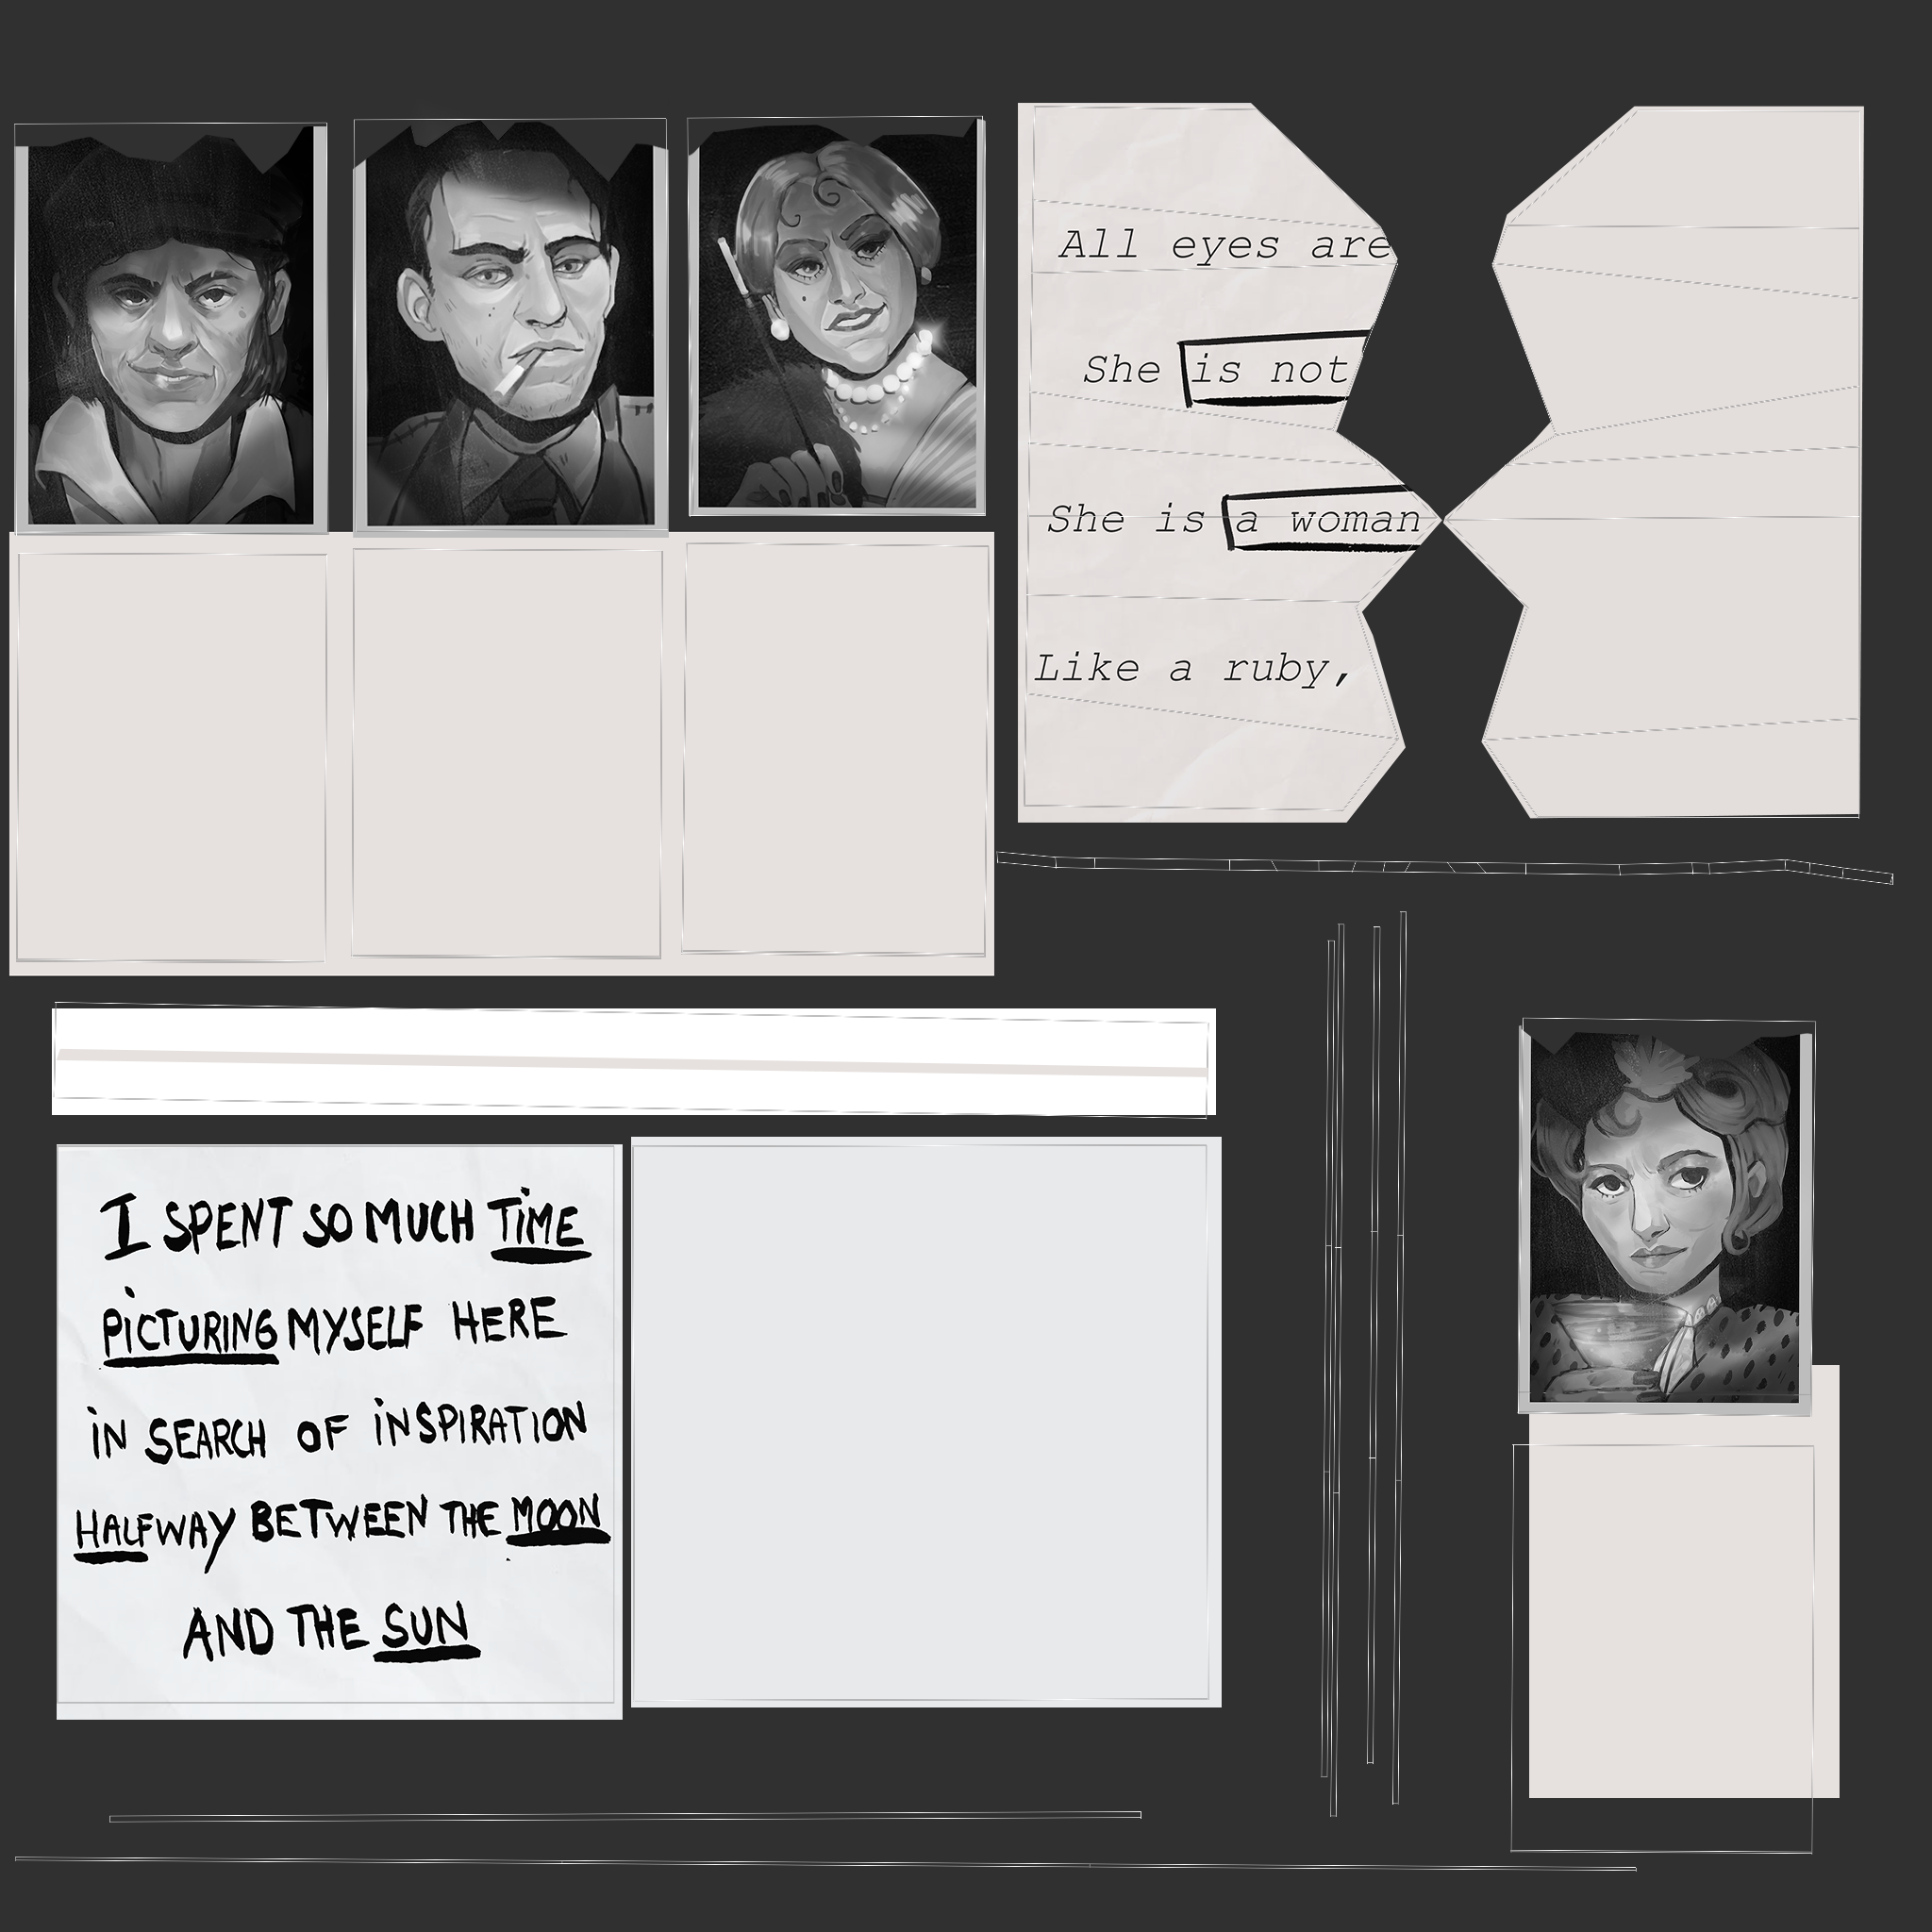 All eyes are
She is not
She is a woman
Like a ruby,
I SPENT SO MUCH TiME
PiCTURING MYSELF HERE
iN SEARCH OF iNSPIRATION
HALFWAY BETWEEN THE MOON
AND THE SUN